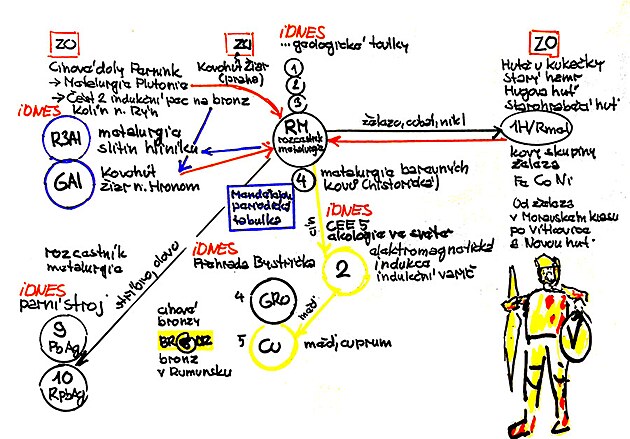 ZO
Cínové doly Parník
→ Metalurgie Plutonia
→ Část 2 indukční pec na bronz
iDNES Kolín n. Rýn
R3Al
metalurgia
slitin hliníku
GAl
Kovohuť
Žiar n. Hronom
ZO
Kovohuť Žiar
(praha)
iDNES
...geologické toulky
1
2
3
RM
rozcestník
metalurgia
4
metalurgia barevných
kovů (historická)
železo, cobal, nikl
ZO
Huť u kukačky
Starý hamr
Hugova huť
Starohraběcí huť
1H/Rmal
kovy skupiny
železa
Fe Co Ni
Od železa
v Moravském krasu
po Vítkovice
a Novou huť
Mendělejov
periodická
tabulka
cín
iDNES
CEE 5
ekologie ve světe
2
elektromagnetická
indukce
indukční vaně
rozcestník
metalurgia
stříbro, olovo
iDNES
parní stroj
9
PbAg
10
RpbAg
iDNES
Přehrada Bystrička
4
GRo
měď
cínové
bronzy
bronz
v Rumunsku
5
Cu
měď, cuprum
V